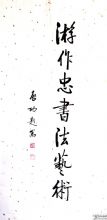 游作忠書法藝術
啟功題寫